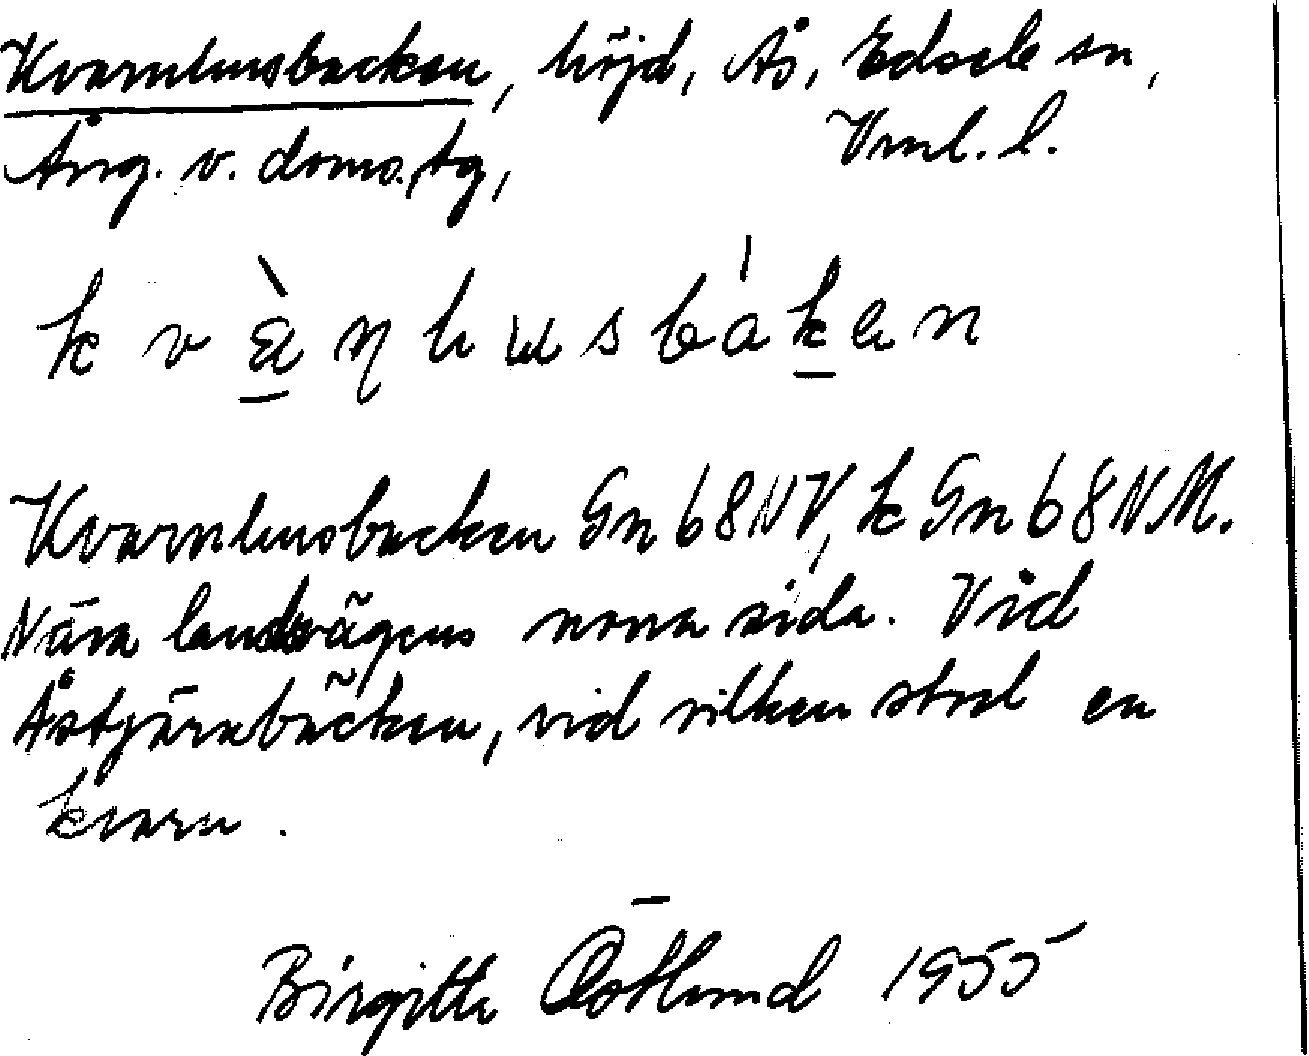 Kvarnhusbacken, höjd, Ås, Edsele sn,
Ång. v. doms. tg, Vml. l.
kvàɳhusbákan
Kvarnhusbacken Gn 68 NV, k Gn 68 NM.
Nära landsvägens norra sida. Vid
Åstjärnbäcken, vid vilken stod en
kvarn.
Birgitta Östlund 1955